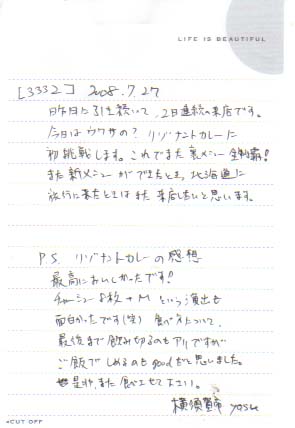 LIFE IS BEAUTIFUL
[3332] 2008.7.27
昨日に引き続いて、2日連続の来店です。
今日はウワサの? リゾナントカレーに
初挑戦します。これでまた裏メニュー全制覇!
また新メニューができたとき、北海道に
旅行に来たときはまた来店したいと思います。
P.S. リゾナントカレーの感想
最高においしかったです!
チャーシュー8枚→Mという演出も
面白かったです(笑) 食べ方について、
最後まで飲み切るのもアリですが
ご飯でしめるのもgoodだと思いました。
是非、また食べさせて下さい。
横須賀市 yasu
CUT OFF